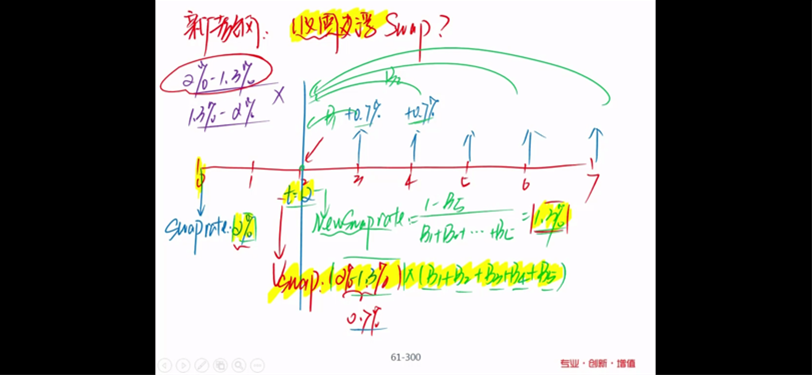 收固支浮 Swap?
2%-1.3%
1.3%-2% ×
B2
B1 +0.7% +0.7%
0 1 2 3 4 5 6 7
t=2
Swap rate: 2%
New Swap rate = 1-B5 / B1+B2+…+B5 = 1.3%
Vswap: (2%-1.3%) × (B1+B2+B3+B4+B5)
0.7%
61-300
专业·创新·增值